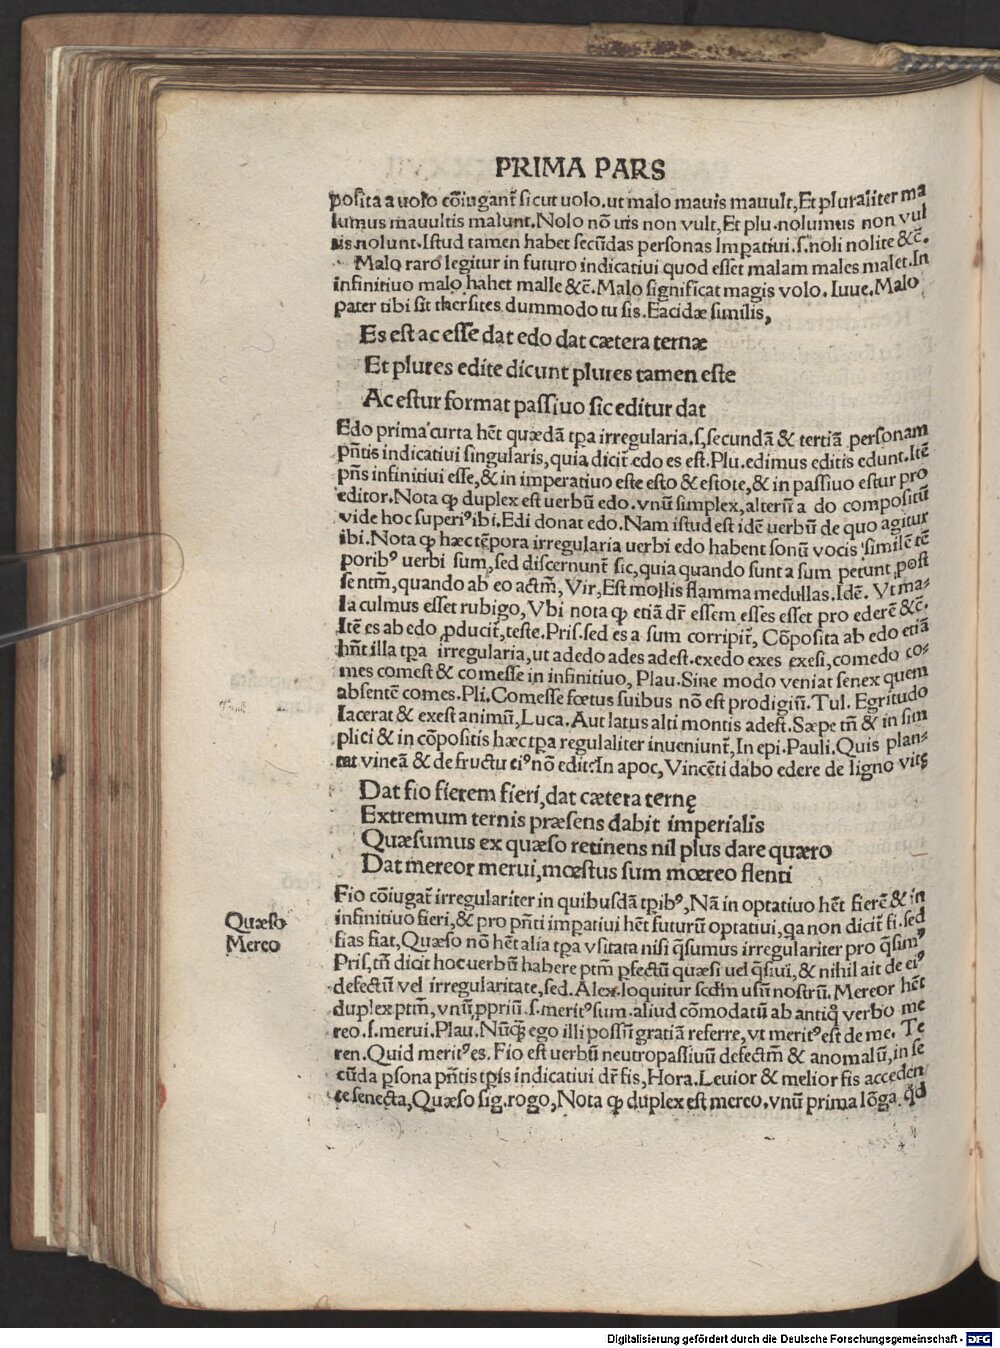 PRIMA PARS
posita a uolo cōiugant᷑ sicut uolo.ut malo mauis mauult,Et pluraliter ma
lumus mauultis malunt.Nolo nō uis non vult,Et plu.nolumus non vul
tis nolunt.Istud tamen habet secūdas personas Impatiui.s.noli nolite &c̄.
Malo raro legitur in futuro indicatiui quod esset malam males malet.In
infinitiuo malo habet malle &c̄.Malo significat magis volo.Iuue.Malo
pater tibi sit thersites dummodo tu sis.Eacidæ similis,
Es est ac esse dat edo dat cætera ternæ
Et plures edite dicunt plures tamen este
Ac estur format passiuo sic editur dat
Edo prima curta hēt quædā tꝑa irregularia.s,secundā & tertiā personam
pn̄tis indicatiui singularis,quia dicit᷑ edo es est.Plu.edimus editis edunt.Itē
pn̄s infinitiui esse,& in imperatiuo este esto & estote,& in passiuo estur pro
editor.Nota ꝙ duplex est uerbū edo.vnū simplex,alterū a do compositū
vide hoc superiꝰ ibi.Edi donat edo.Nam istud est idē uerbū de quo agitur
ibi.Nota ꝙ hæc tēpora irregularia uerbi edo habent sonū vocis similē tē
poribꝰ uerbi sum,sed discernunt᷑ sic,quia quando sunt a sum petunt post
se ntm̄,quando ab eo actm̄,Vir,Est mollis flamma medullas.Idē.Vt ma⸗
la culmus esset rubigo,Vbi nota ꝙ etiā dr̄ essem esses esset pro ederē &c̄.
Itē es ab edo ꝓducit᷑,teste.Pris.sed es a sum corripit᷑,Cōposita ab edo etiā
hn̄t illa tꝑa irregularia,ut adedo ades adest.exedo exes exesi,comedo co⸗
mes comest & comesse in infinitiuo,Plau.Sine modo veniat senex quem
absentē comes.Pli.Comesse fœtus suibus nō est prodigiū.Tul.Egritudo
lacerat & exest animū,Luca.Aut latus alti montis adest.Sæpe tn̄ & in sim
plici & in cōpositis hæc tꝑa regulaliter inueniunt᷑,In epi.Pauli.Quis plan⸗
tat vineā & de fructu eiꝰ nō edit:In apoc,Vincēti dabo edere de ligno vitę
Dat fio fierem fieri,dat cætera ternę
Extremum ternis præsens dabit imperialis
Quæsumus ex quæso retinens nil plus dare quæro
Dat mereor merui,mœstus sum mœreo flenti
Quæso
Mereo
Fio cōiugat᷑ irregulariter in quibusdā tꝑibꝰ,Nā in optatiuo hēt fierē & in
infinitiuo fieri,& pro pn̄ti impatiui hēt futurū optatiui,qa non dicit᷑ fi.sed
fias fiat,Quæso nō hēt alia tꝑa vsitata nisi q̄sumus irregulariter pro q̄simꝰ
Pris,tn̄ dicit hoc uerbū habere ptm̄ ꝑfectū quæsi uel q̄siui,& nihil ait de eiꝰ
defectū vel irregularitate,sed.Alex.loquitur scdm̄ usū nostrū.Mereor hēt
duplex ptm̄,vnū,ꝓpriū.s.meritꝰsum.aliud cōmodatū ab antiq̊ verbo me
reo.s.merui.Plau.Nūq̄ ego illi possū gratiā referre,vt meritꝰ est de me.Te
ren.Quid meritꝰ es.Fio est uerbū neutropassiuū defectm̄ & anomalū,in se
cūda ꝑsona pn̄tis tꝑis indicatiui dr̄ fis,Hora.Leuior & melior fis acceden
te senecta,Quæso sig.rogo,Nota ꝙ duplex est mereo.vnū prima lōga qd̄
Digitalisierung gefördert durch die Deutsche Forschungsgemeinschaft - DFG